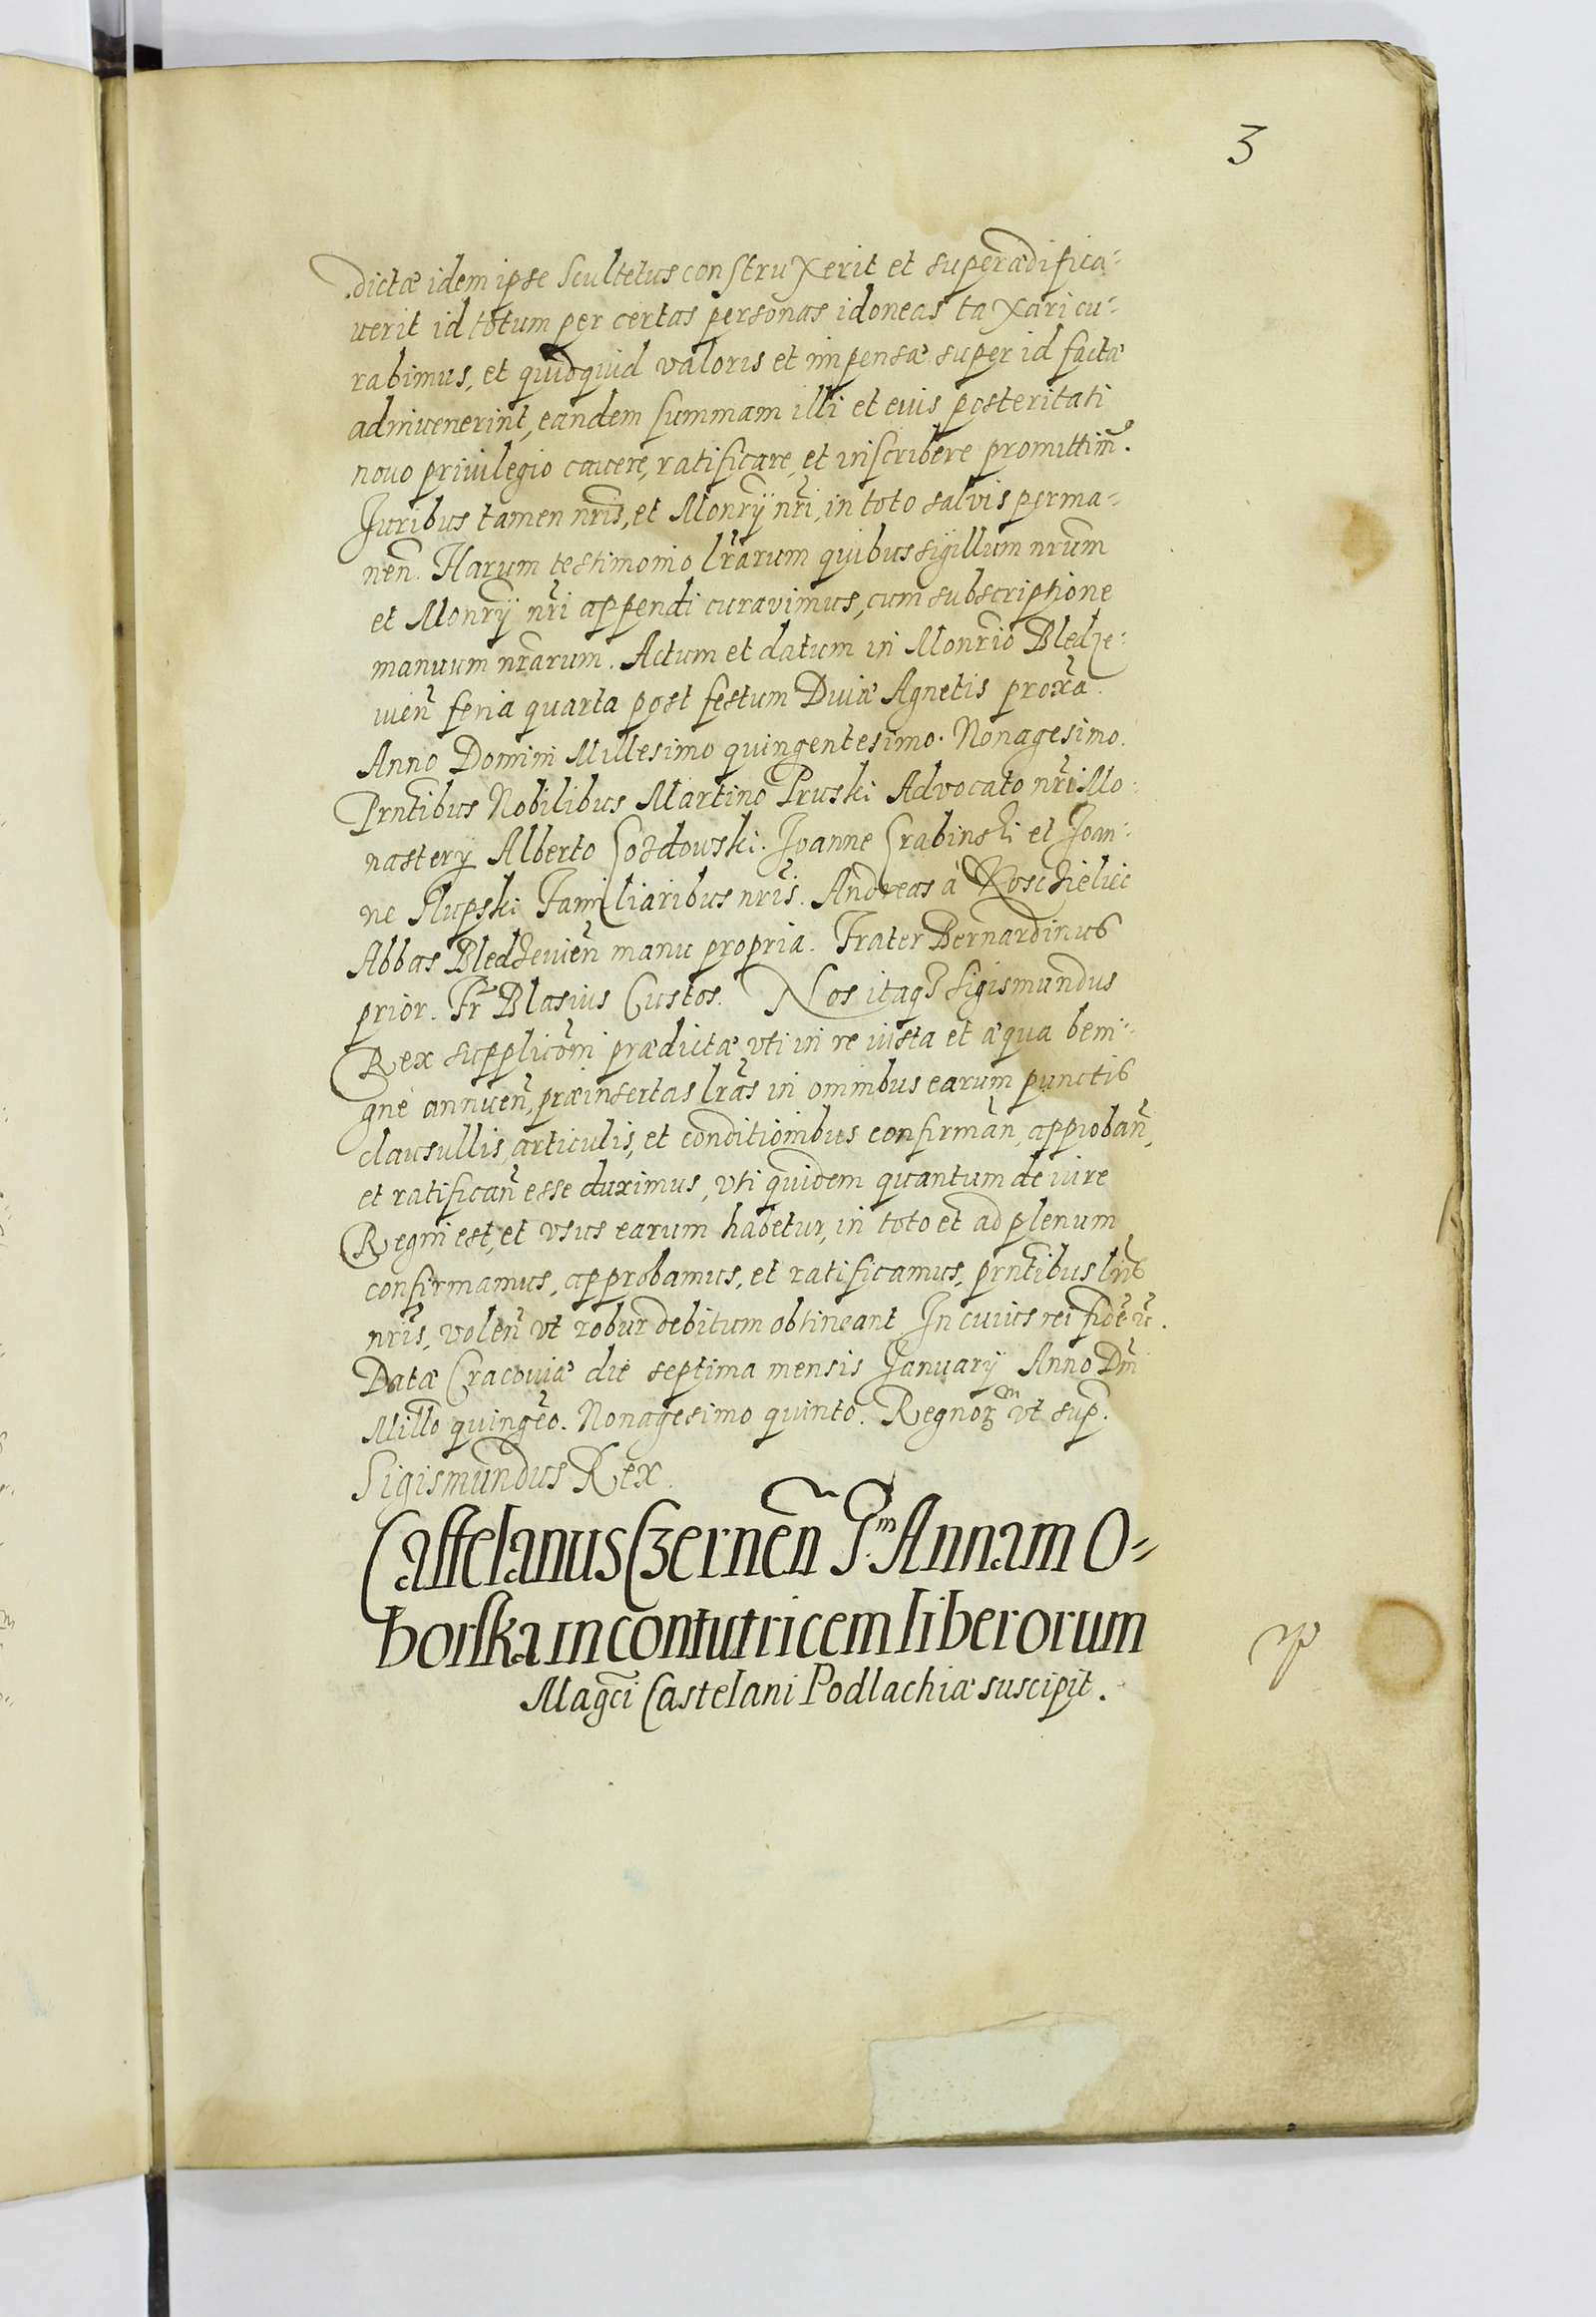 3
dictæ idem ipse Scultetus construxerit et superædifica-
verit id totum per certas personas idoneas taxari cu-
rabimus, et quidquid valoris et impensæ super id factæ
adinvenerint, eandem summam illi et eius posteritati
novo privilegio cavere, ratificare, et inscribere promittim̃.
Juribus tamen nr̃is, et Monrĩj nr̃i, in toto salvis perma-
neñ. Harum testimonio lr̃arum quibus sigillum nr̃um
et Monrĩj nr̃i appendi curavimus, cum subscriptione
manuum nr̃arum. Actum et datum in Monrĩo Bledze-
vieñ feria quarta post festum Divæ Agnetis prox̃a.
Anno Domini Millesimo quingentesimo. Nonagesimo.
Prñtibus Nobilibus Martino Pruski Advocato nr̃i Mo-
nasterij Alberto Cozdowski. Joanne Grabinski et Joan-
ne Slupski Familiaribus nr̃is. Andreas à
Abbas Bledzevieñ manu propria. Frater Bernardinus
prior. Fr̃ Blasius Custos. Nos itaq3 Sigismundus
Rex supplicõni prædictæ vti in re iusta et æqua beni-
gnè annueñ, præinsertas lr̃as in omnibus earum punctis
clausullis, articulis, et conditionibus confirmañ, approbañ,
et ratificañ esse duximus, vti quidem quantum de iure
Regni est, et vsus earum habetur, in toto et ad plenum
confirmamus, approbamus, et ratificamus, prñtibus lr̃is
nr̃is, voleñ vt robur debitum obtineant In cuius rei fidẽ
Datæ Cracoviæ die septima mensis Januarij Anno Dñi
Millõ quingẽo. Nonagesimo quinto. Regnor̃ vt sup̃.
Sigismundus Rex.
Castelanus Czerneñ G.m Annam O-
borska in contutricem liberorum
Mag̃ci Castelani Podlachiæ suscipit.